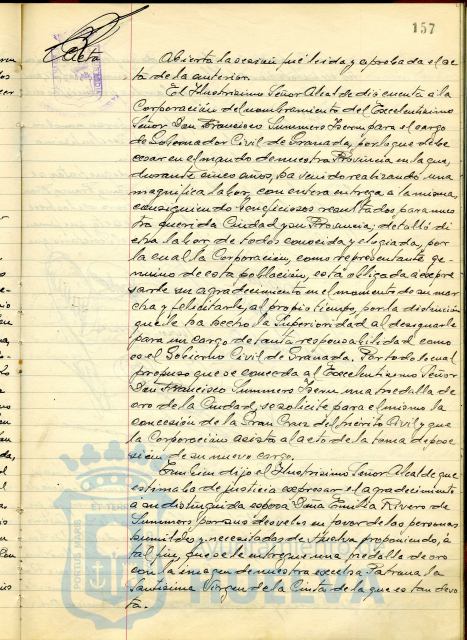 157
Acta
Abierta la sesión fué leida y aprobada el ac
ta de la anterior.
El Ilustrísimo Señor Alcalde dió cuenta a la
Corporación del nombramiento del Excelentísimo
Señor Don Francisco Summers Isern para el cargo
de Gobernador Civil de Granada, por lo que debe
cesar en el mando de nuestra Provincia en la que,
durante cinco años, ha venido realizando una
magnífica labor, con entera entrega a la misma,
consiguiendo beneficiosos resultados para nues
tra querida Ciudad y su Provincia; detalló di
cha labor, de todos conocida y elogiada, por
la cual la Corporación, como representante ge-
nuino de esta población, está obligada a expre
sarle su agradecimiento en el momento de su mar
cha y felicitarle, al propio tiempo, por la distinción
que le ha hecho la Superioridad al designarle
para un cargo de tanta responsabilidad como
es el Gobierno Civil de Granada. Por todo lo cual
propuso que se conceda al Excelentísimo Señor
Don Francisco Summers Isern una medalla de
oro de la Ciudad, se solicite para el mismo la
concesión de la Gran Cruz del Mérito Civil y que
la Corporación asista al acto de la toma de pose
sión de su nuevo cargo.
También dijo el Ilustrísimo Señor Alcalde que
estimaba de justicia expresar el agradecimiento
a su distinguida esposa Doña Emilia Rivero de
Summers, por sus desvelos en favor de las personas
humildes y necesitadas de Huelva proponiendo, a
tal fin, que se le entregue una medalla de oro
con la imagen de nuestra excelsa Patrona, la
Santísima Virgen de la Cinta de la que es tan devo
ta.
PORTUS MARIS
HUELVA